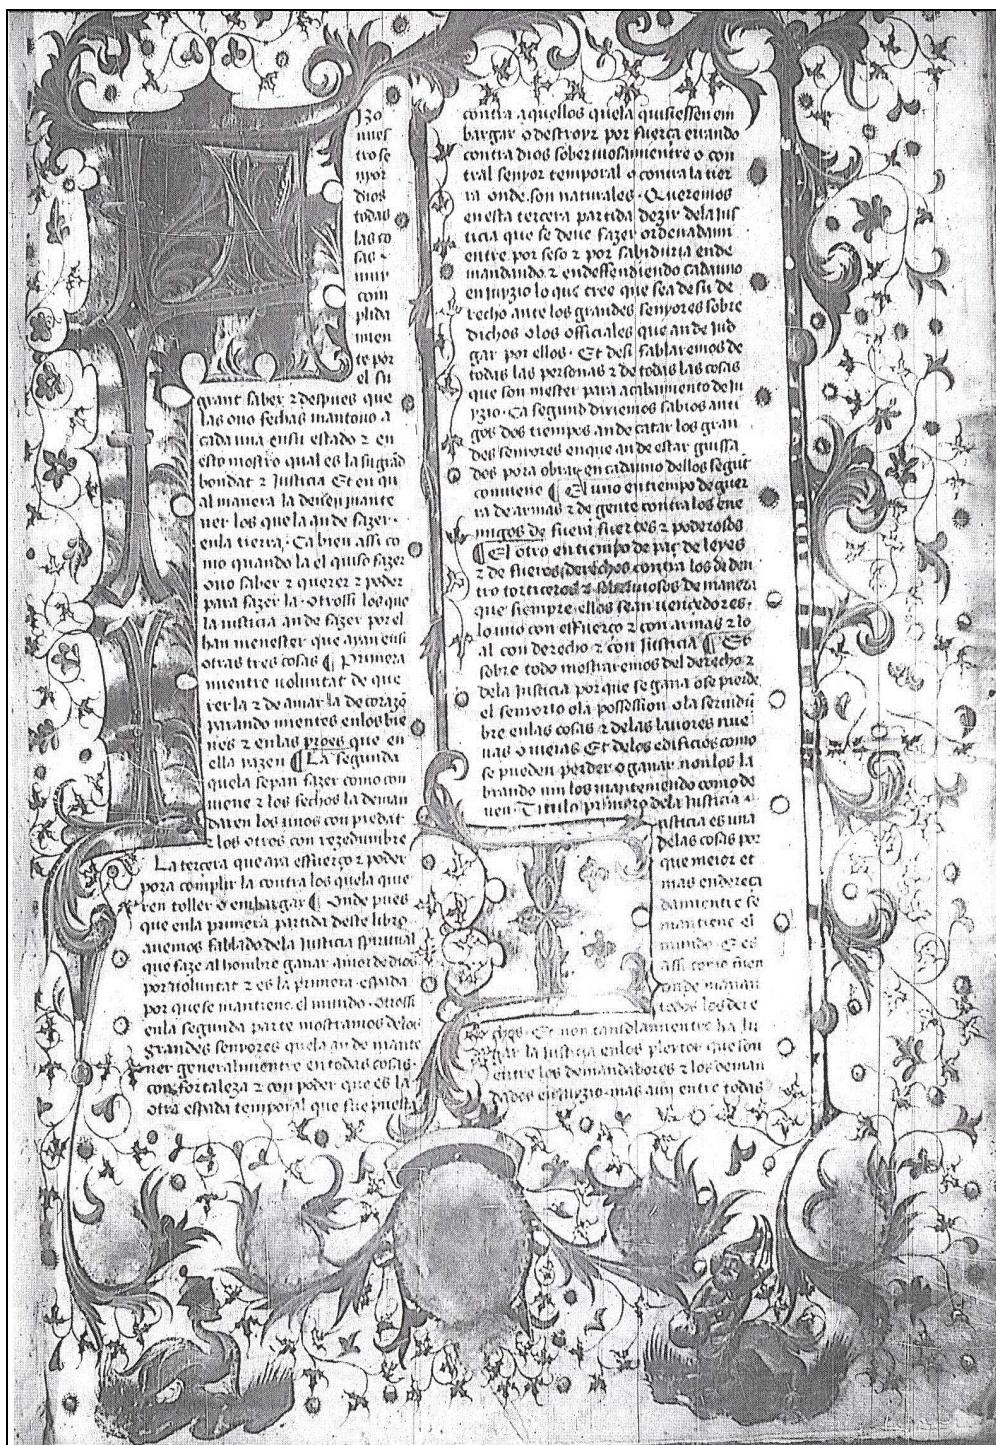 izo
nues
tro se
nyor
dios
todas
las co
sas
muy
com
plida
mien
te por
el su
grant saber ⁊ despues que
las ouo fechas mantouo a
cada una en su estado ⁊ en
esto mostro qual es la su grād
bondat ⁊ justicia Et en qu
al manera la deuen mante
ner los que la an de fazer·
en la tierra· Ca bien assi co
mo quando la el quiso fazer
ouo saber ⁊ querer ⁊ poder
para fazer la· otrossi los que
la justicia an de fazer por el
han menester que ayan en si
otras tres cosas ¶ Primera
mientre uoluntat de que
rer la ⁊ de amar la de corazō
parando mientes en los bie
nes ⁊ en las proes que en
ella yazen ¶ La segunda
que la sepan fazer como con
uiene ⁊ los fechos la deman
daren los unos con piedat·
⁊ los otros con rezedumbre
La tercera que aya esfuerço ⁊ poder
pora complir la contra los que la quie
ren toller o embargar ¶ Onde pues
que en la primera partida deste libro
auemos fablado de la justicia spiritual
que faze al hombre ganar amor de dios
por uoluntat ⁊ es la primera espada
por que se mantiene el mundo· otrossi
en la segunda parte mostramos de los
grandes senyores que la an de mante
ner generalmientre en todas cosas·
con fortaleza ⁊ con poder que es la
otra espada temporal que fue puesta
contra aquellos que la quisiessen em
bargar o destroyr por fuerça errando
contra dios soberuiosamientre o con
tral senyor temporal o contra la tier
ra onde son naturales· Queremos
en esta tercera partida dezir de la jus
ticia que se deue fazer ordenadami
entre por seso ⁊ por sabiduria en de
mandando ⁊ en deffendiendo cada uno
en juyzio lo que cree que sea de su de
recho ante los grandes senyores sobre
dichos o los officiales que an de jud
gar por ellos· Et desi fablaremos de
todas las personas ⁊ de todas las cosas
que son mester para acabamiento de ju
yzio· Ca segund dixiemos sabios anti
gos dos tiempos an de catar los gran
des senyores en que an de estar guisa
dos pora obrar en cada uno dellos seguÌ
conuiene ¶ El uno en tiempo de guer
ra de armas ⁊ de gente contra los ene
migos de fuera fuertes ⁊ poderosos
¶ El otro en tiempo de paz de leyes
⁊ de fueros derechos contra los de den
tro torticeros ⁊ soberuiosos de manera
que siempre ellos sean uencedores·
lo uno con esfuerço ⁊ con armas ⁊ lo
al con derecho ⁊ con justicia ¶ Et
sobre todo mostraremos del derecho ⁊
de la justicia por que se gana o se pierde
el senyorio o la possession o la seruidū
bre en las cosas ⁊ de las lauores nue
uas o uieias Et de los edificios como
se pueden perder o ganar non los la
brando nin los manteniendo como de
uen· Titulo primero de la justicia·
justicia es una
de las cosas por
que meior et
mas endereça
damientre se
mantiene el
mundo· E es
assi como fuen
onde manan
todos los dere
chos· Et non tan solamientre ha lu
gar la justicia en los pleytos que son
entre los demandadores ⁊ los deman
dados en juyzio· mas aun entre todas